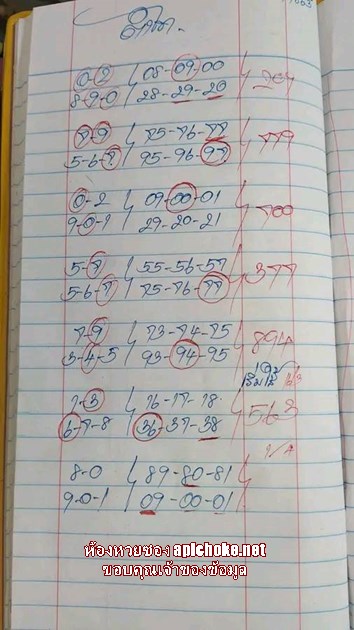 0-2 / 08-09-00
8-9-0 / 28-29-20
7-9 / 75-76-77 779
5-6-7 / 95-96-97
0-2 / 09-00-01 700
9-0-1 / 29-20-21
5-7 / 55-56-57 377
5-6-7 / 75-76-77
7-9 / 73-74-75 894
3-4-5 / 93-94-95
1-3 / 16-17-18 563
6-7-8 / 36-37-38
8-0 / 89-80-81
9-0-1 / 09-00-01
ห้องหวยซอง apichoke.net
ขอบคุณเจ้าของข้อมูล